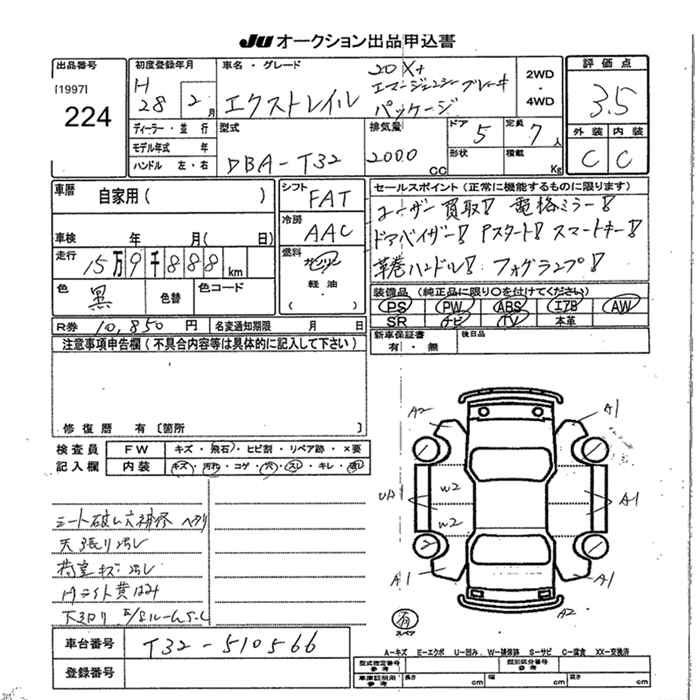 JU オークション出品申込書
出品番号
[1997]
224
初度登録年月
H
28 2月
車名・グレード
エクストレイル
20X+
エマージェンシーブレーキ
パッケージ
2WD
・
4WD
評価点
3.5
外装 内装
C C
ディーラー・並行
モデル年式 年
ハンドル 左・右
型式
DBA-T32
排気量
2000 cc
ドア 5
定員 7人
形状
積載 Kg
車歴 自家用( )
車検 年 月( 日)
走行
15万9千888 km
色
黒
色替
色コード
シフト
FAT
冷房
AAC
燃料
ガソリン
軽油
( )
セールスポイント(正常に機能するものに限ります)
ユーザー買取! 電格ミラー!
ドアバイザー! Pスタート! スマートキー!
革巻ハンドル! フォグランプ!
装備品(純正品に限り○を付けてください)
PS PW ABS エアB AW
SR ナビ TV 本革
R券 10,850 円
名変通知期限 月 日
新車保証書
有・無
後日品
注意事項申告欄(不具合内容等は具体的に記入して下さい)
修復歴 有〔箇所 〕
検査員
記入欄
FW キズ・飛石・ヒビ割・リペア跡・×要
内装 キズ・汚れ・コゲ・穴・スレ・キレ・
シート破レ穴補修 ヘタリ
天張り汚レ
荷室キズ・汚レ
Hライト黄ばみ
車台番号 T32-510566
登録番号
A2 A1
UA1 W2 A1
W2
A1 A1
A2
有
スペア
A-キズ E-エクボ U-凹み W-補修跡 S-サビ C-腐食 XX-交換済
型式指定番号
類別区分番号
車庫証明用
参考
長さ cm 幅 cm 高さ cm